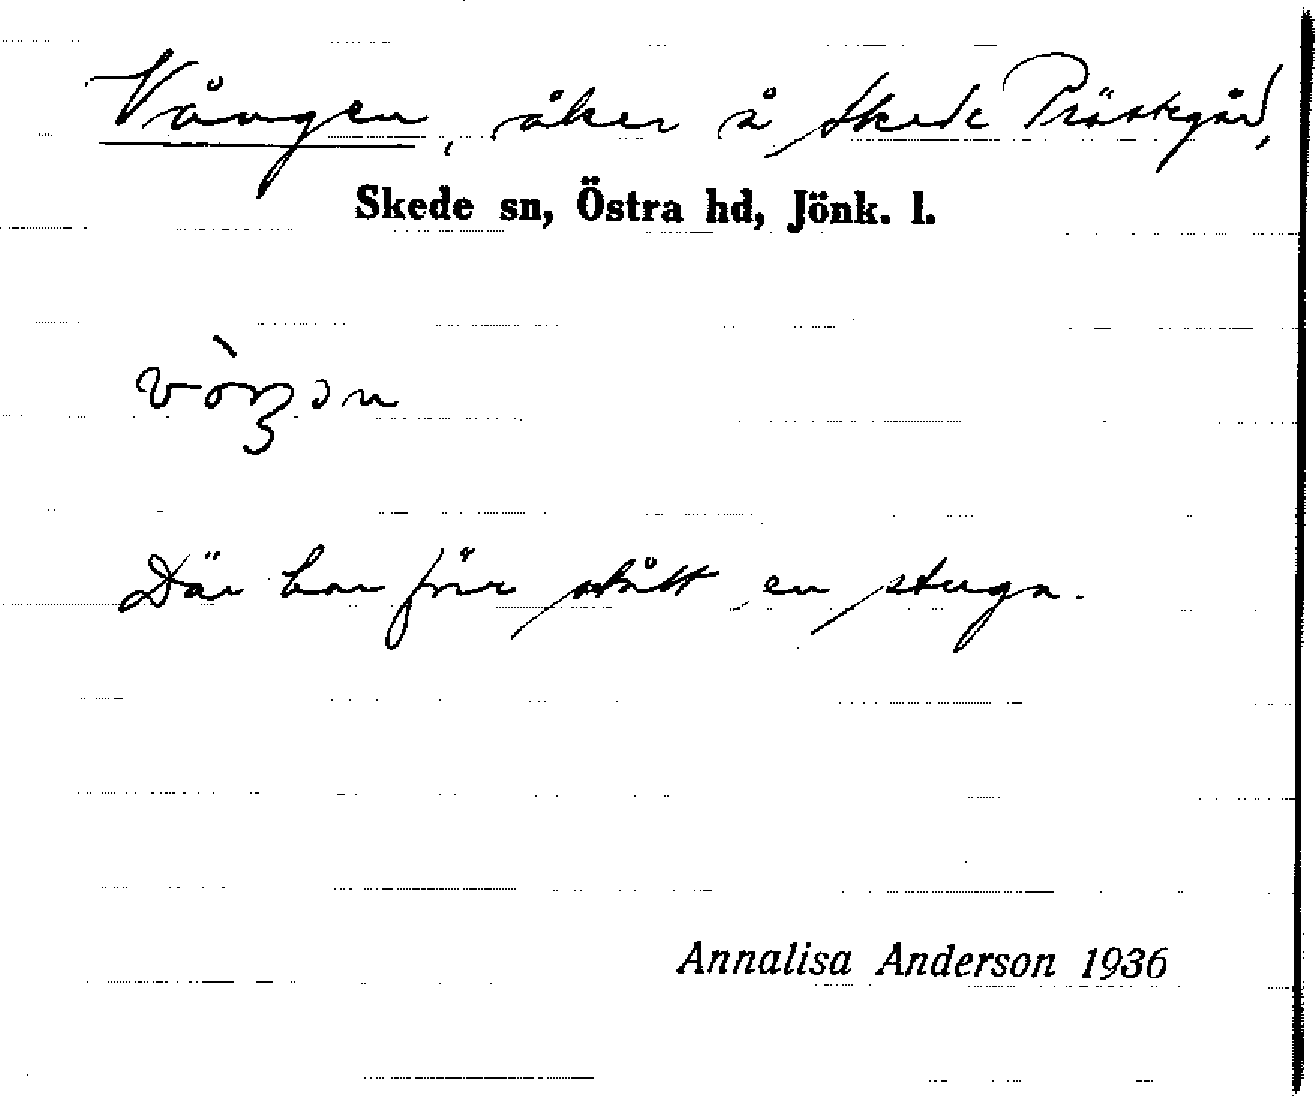 Vången, åker å Skede Prästgård,
Skede sn, Östra hd, Jönk. l.
vòŋən
Där har förr stått en stuga.
Annalisa Anderson 1936